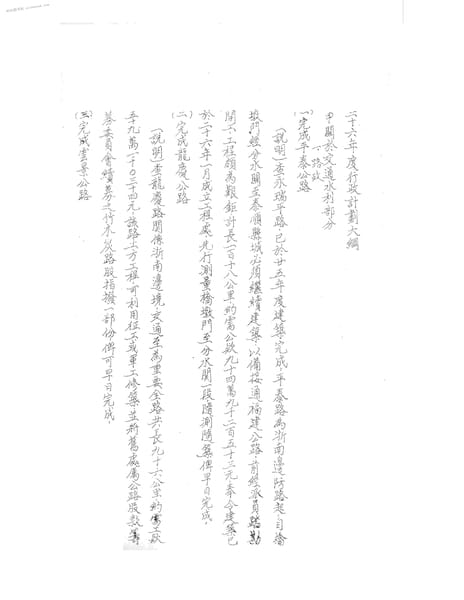 二十六年度行政計劃大綱
甲關於交通水利部分
1.路政
(一)完成平泰公路
(說明)查永瑞平路已於廿五年度建築完成平泰路為浙南邊防路起自橋
墩門經分水關至泰順縣城必須繼續建築以備接通福建公路前經派員踏勘
開工工程頗為艱鉅計長一百十八公里約需公欵九十四萬九千二百五十三元奉令建築已
於二十六年一月成立工程處先行測量橋墩門至分水關一段隨測隨築俾早日完成。
(二)完成龍慶公路
(說明)查龍慶路關係浙南邊境交通至為重要全路共長九十六公里約需工欵
五十九萬一千0三十四元該路土方工程可利用征工或軍工修築並將舊處屬公路股款籌
募委員會續募之竹木炭路股指撥一部份俾可早日完成。
(三)完成雲景公路